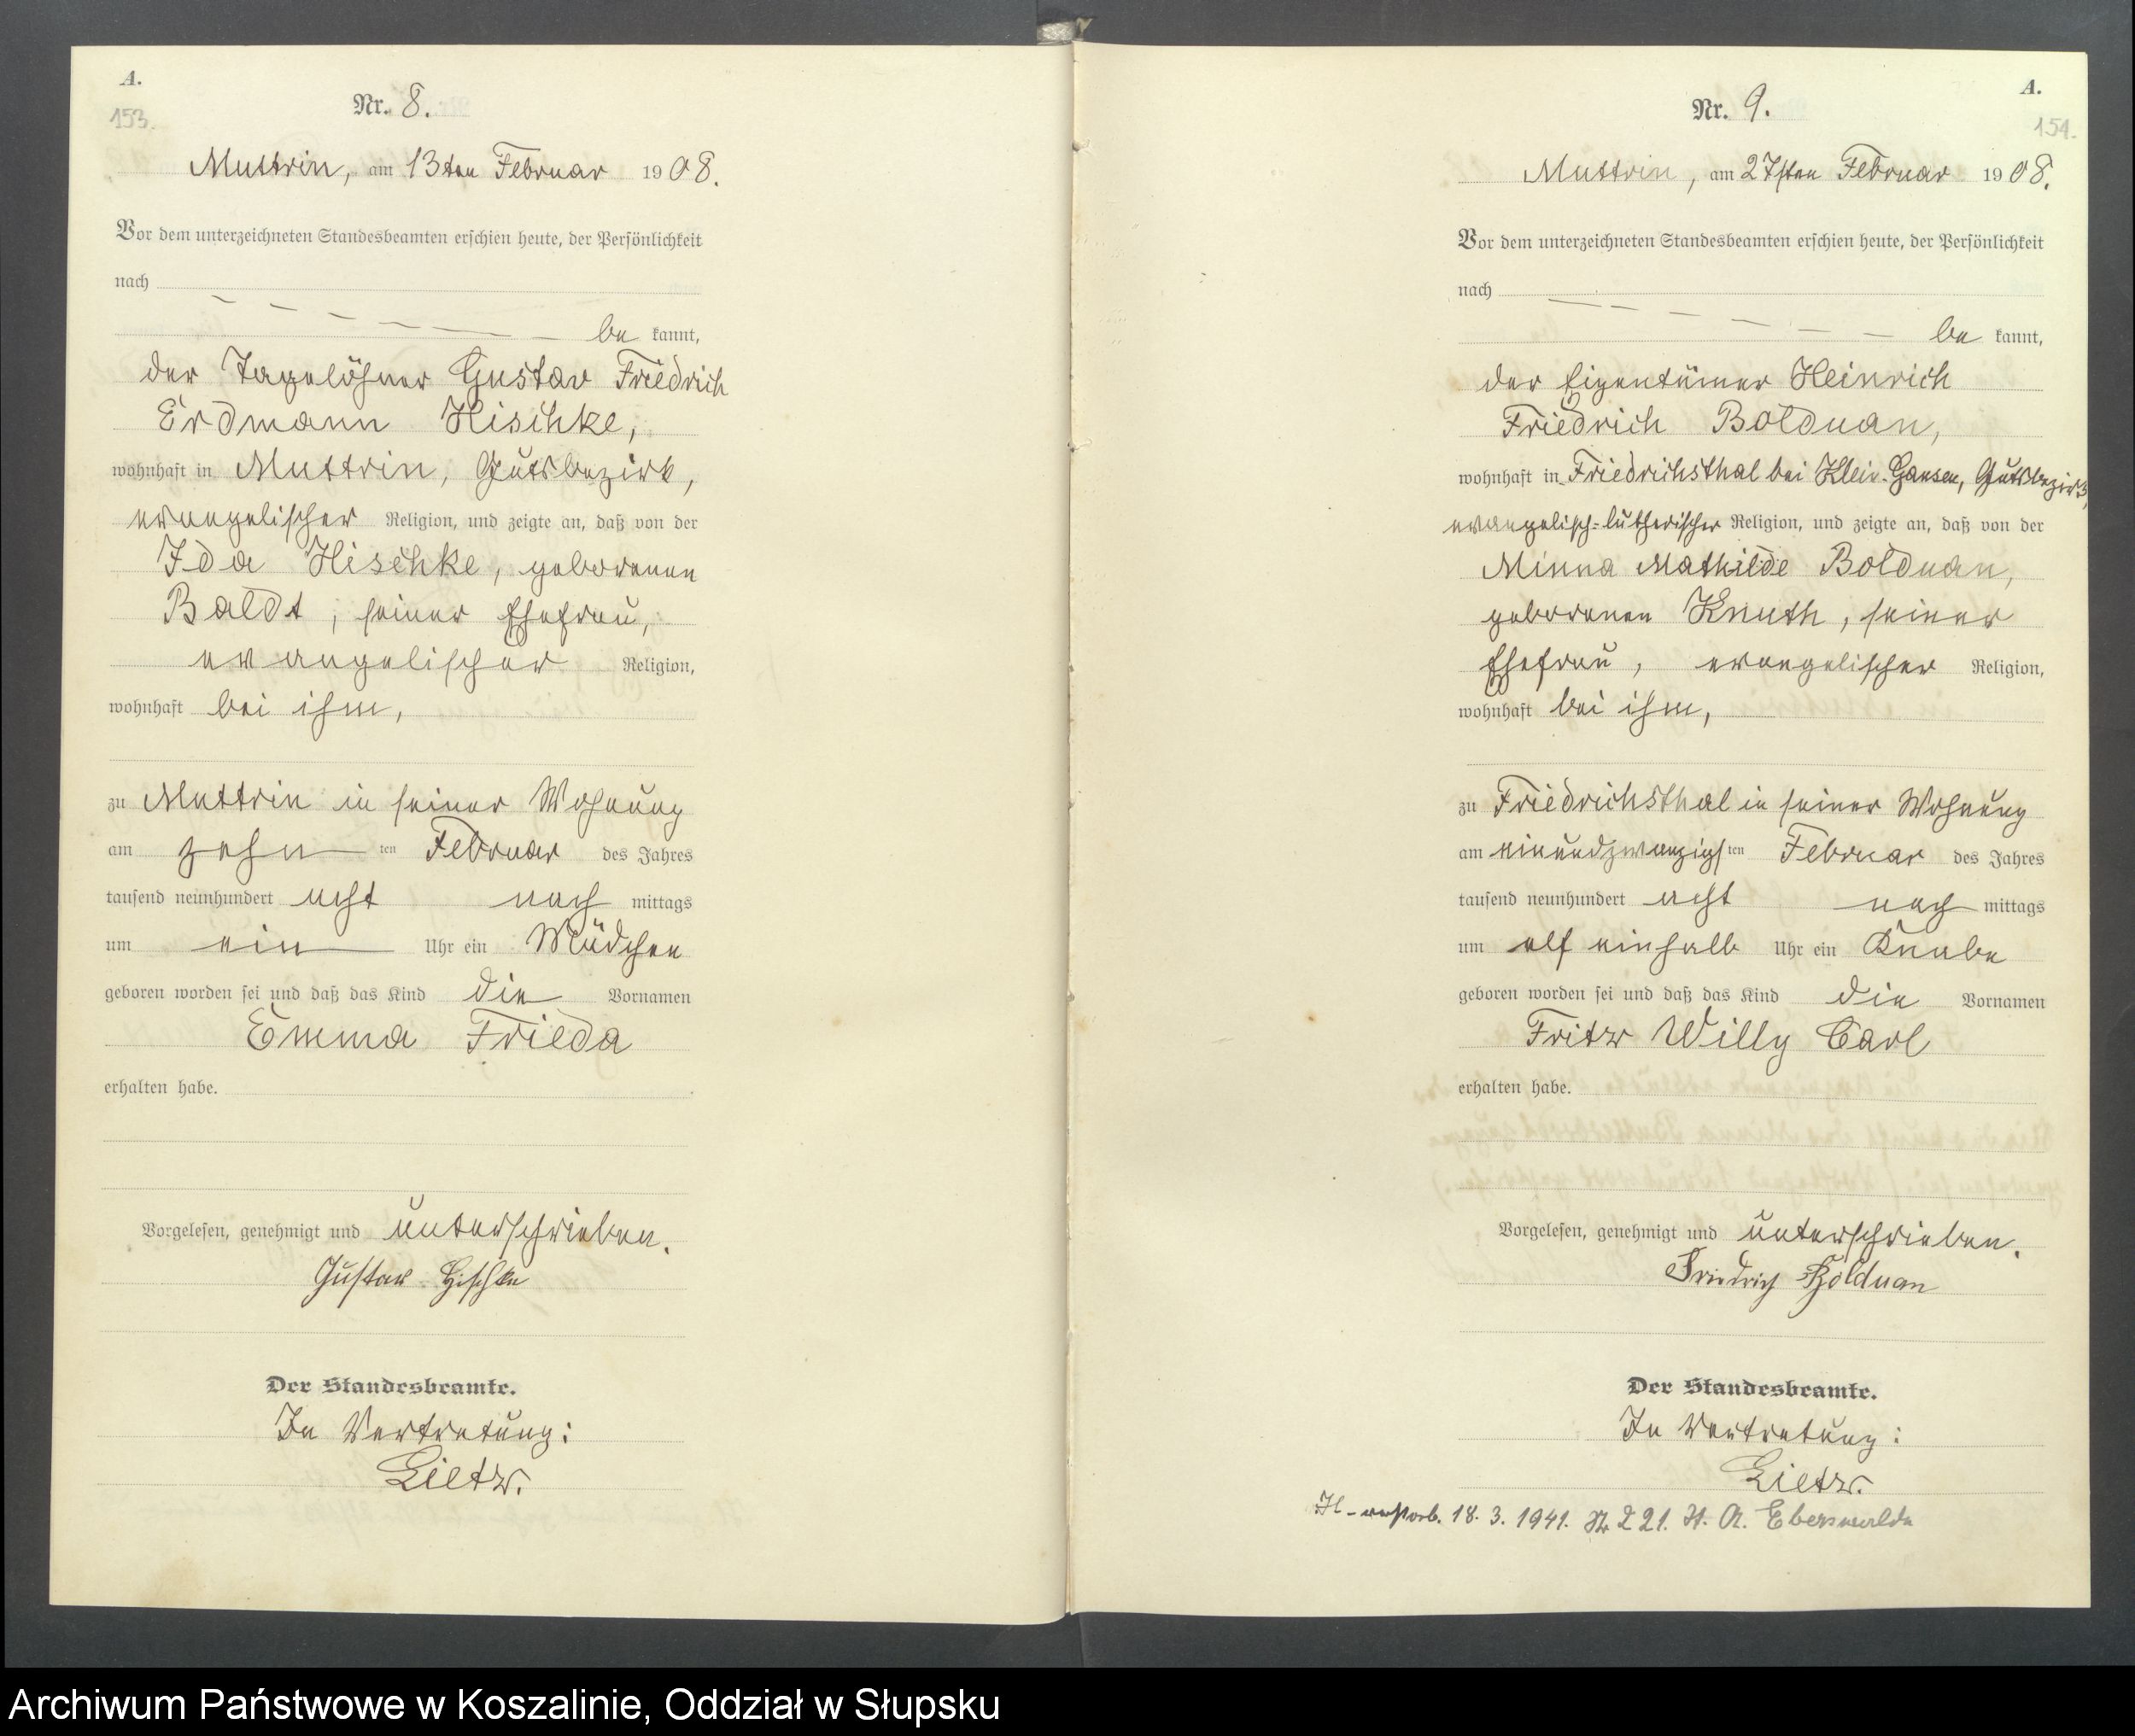 A.
153.
Nr. 8.
Muttrin, am 13ten Februar 1908.
Vor dem unterzeichneten Standesbeamten erschien heute, der Persönlichkeit
nach
be kannt,
der Tagelöhner Gustav Friedrich
Erdmann Hischke,
wohnhaft in Muttrin, Gutsbezirk,
evangelischer Religion, und zeigte an, daß von der
Ida Hischke, geborenen
Baldt, seiner Ehefrau,
evangelischer Religion,
wohnhaft bei ihm,
zu Muttrin in seiner Wohnung
am zehn ten Februar des Jahres
tausend neunhundert acht nach mittags
um ein Uhr ein Mädchen
geboren worden sei und daß das Kind die Vornamen
Emma Frieda
erhalten habe.
Vorgelesen, genehmigt und unterschrieben.
Gustav Hischke
Der Standesbeamte.
In Vertretung:
Lietz.
A.
154.
Nr. 9.
Muttrin, am 27sten Februar 1908.
Vor dem unterzeichneten Standesbeamten erschien heute, der Persönlichkeit
nach
be kannt,
der Eigentümer Heinrich
Friedrich Bolduan,
wohnhaft in Friedrichsthal bei Klein-Gansen, Gutsbezirk,
evangelisch-lutherischer Religion, und zeigte an, daß von der
Minna Mathilde Bolduan,
geborenen Knuth, seiner
Ehefrau, evangelischer Religion,
wohnhaft bei ihm,
zu Friedrichsthal in seiner Wohnung
am einundzwanzigsten Februar des Jahres
tausend neunhundert acht nach mittags
um elf einhalb Uhr ein Knabe
geboren worden sei und daß das Kind die Vornamen
Fritz Willy Carl
erhalten habe.
Vorgelesen, genehmigt und unterschrieben.
Friedrich Bolduan
Der Standesbeamte.
In Vertretung:
Lietz.
verstorb. 18. 3. 1941. Nr 221. St. A. Eberswalde
Archiwum Państwowe w Koszalinie, Oddział w Słupsku